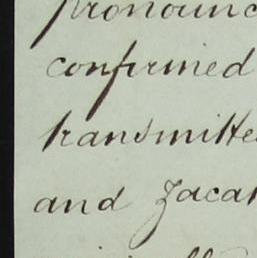 pronounc
confirmed
transmitte
and Zacar